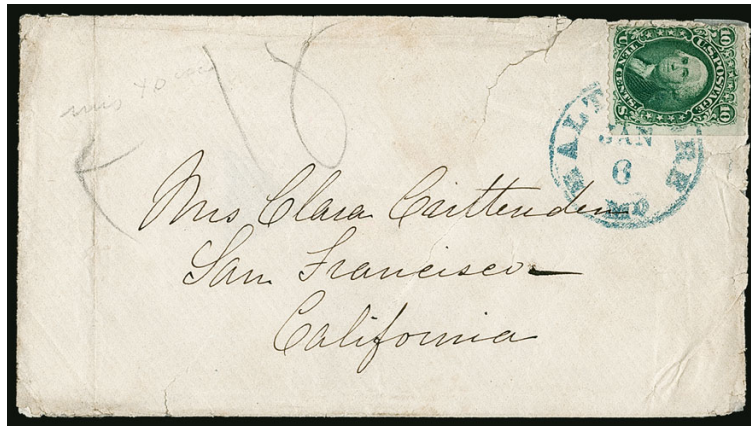 U.S. POSTAGE
10 10
TEN CENTS
U S
BALTIMORE
JAN
6
MD
18
Mrs Clara Crittenden
San Francisco
California